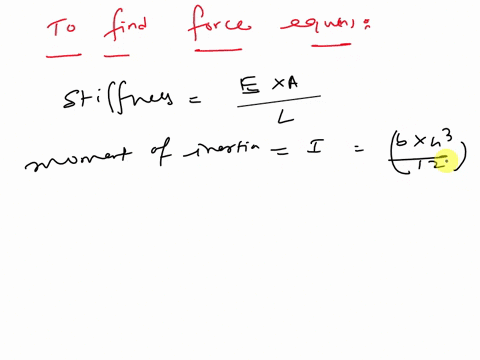 To find force equns:
Stiffness = E × A / L
moment of inertia = I = (b × h³ / 12)